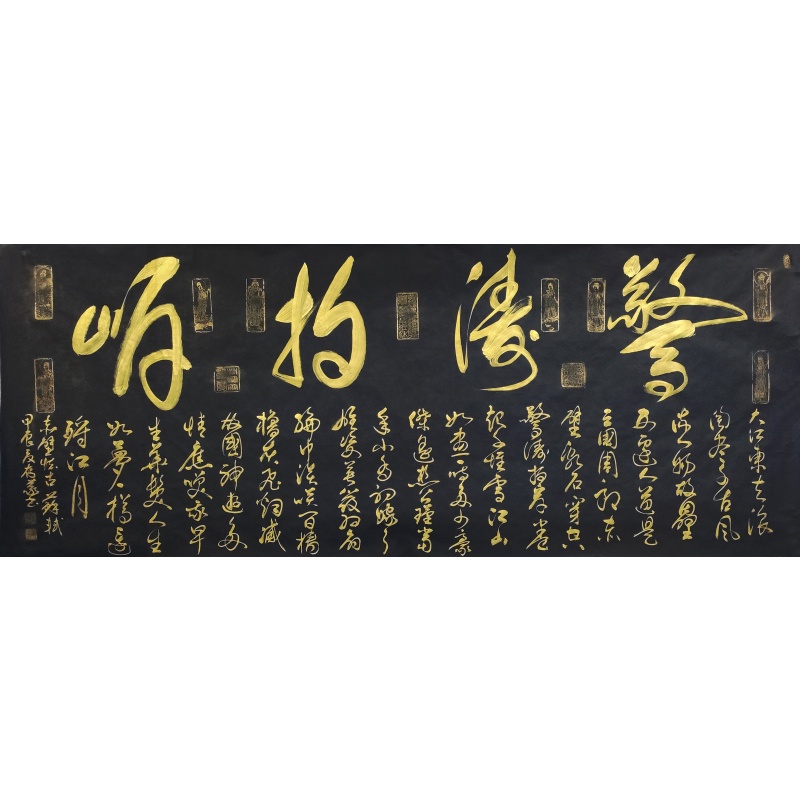 驚濤拍岸
大江東去浪
淘盡千古風
流人物故壘
西邊人道是
三國周郎赤
壁亂石穿空
驚濤拍岸卷
起千堆雪江山
如畫一時多少豪
傑遙想公瑾當
年小喬初嫁了
雄姿英發羽扇
綸巾談笑間檣
櫓灰飛煙滅
故國神遊多
情應笑我早
生華髮人生
如夢一樽還
酹江月
赤壁懷古蘇軾
甲辰